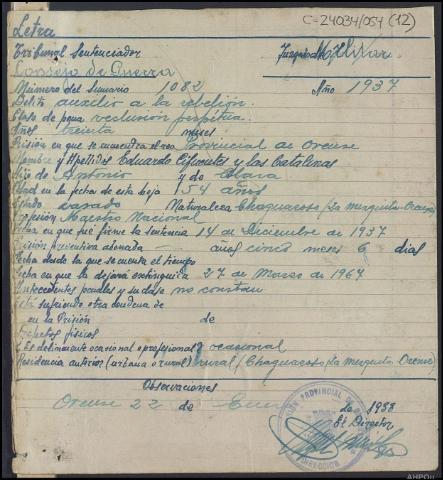 C-24034/054 (12)
Letra
Tribunal Sentenciador Juzgado Militar
Consejo de Guerra
Número del Sumario 1082 Año 1937
Delito auxilio a la rebelión.
Clase de pena reclusión perpetua.
Años treinta meses
Prisión en que se encuentra el reo Provincial de Orense
Nombre y Apellidos Eduardo Cifuentes y las Catalinas
Hijo de Antonio y de Clara
Edad en la fecha de esta hoja 54 años
Estado casado Naturaleza Chaguacoso/La Mezquita-Orense
Profesión Maestro Nacional
Fecha en que fué firme la sentencia 14 de Diciembre de 1937
Prisión preventiva abonada — años cinco meses 6 dias
Fecha desde la que se cuenta el tiempo
Fecha en que la dejará extinguida 27 de Marzo de 1967
Antecedentes penales y su clase no constan
Está sufriendo otra condena de
en la Prisión de
Defectos físicos
¿Es delincuente ocasional o profesional? ocasional
Residencia anterior (urbana o rural) rural/Chaguacoso/La Mezquita Orense
Observaciones
Orense 22 de Enero de 1938
El Director
AHPROU